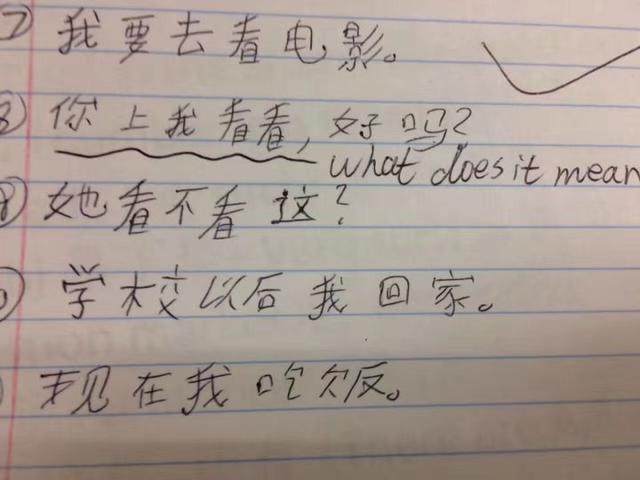 ⑦ 我要去看电影。
⑧ 你上我看看,好吗?
what does it mean
⑨ 她看不看这?
学校以后我回家。
现在我吃饭。